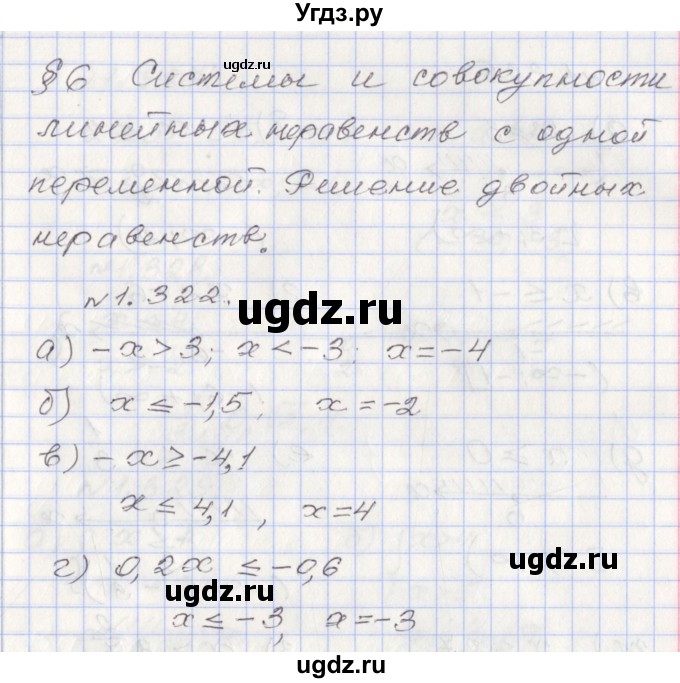 Угдз.ру
ugdz.ru
§6 Системы и совокупности
линейных неравенств с одной
переменной. Решение двойных
неравенств.
ugdz.ru
ugdz.ru
№1.322.
ugdz.ru
а) -x>3; x<-3; x=-4
б) x ≤ -1,5, x=-2
ugdz.ru
в) -x≥-4,1
x ≤ 4,1, x=4
ugdz.ru
г) 0,2x ≤-0,6
x ≤ -3, x=-3
ugdz.ru
ugdz.ru